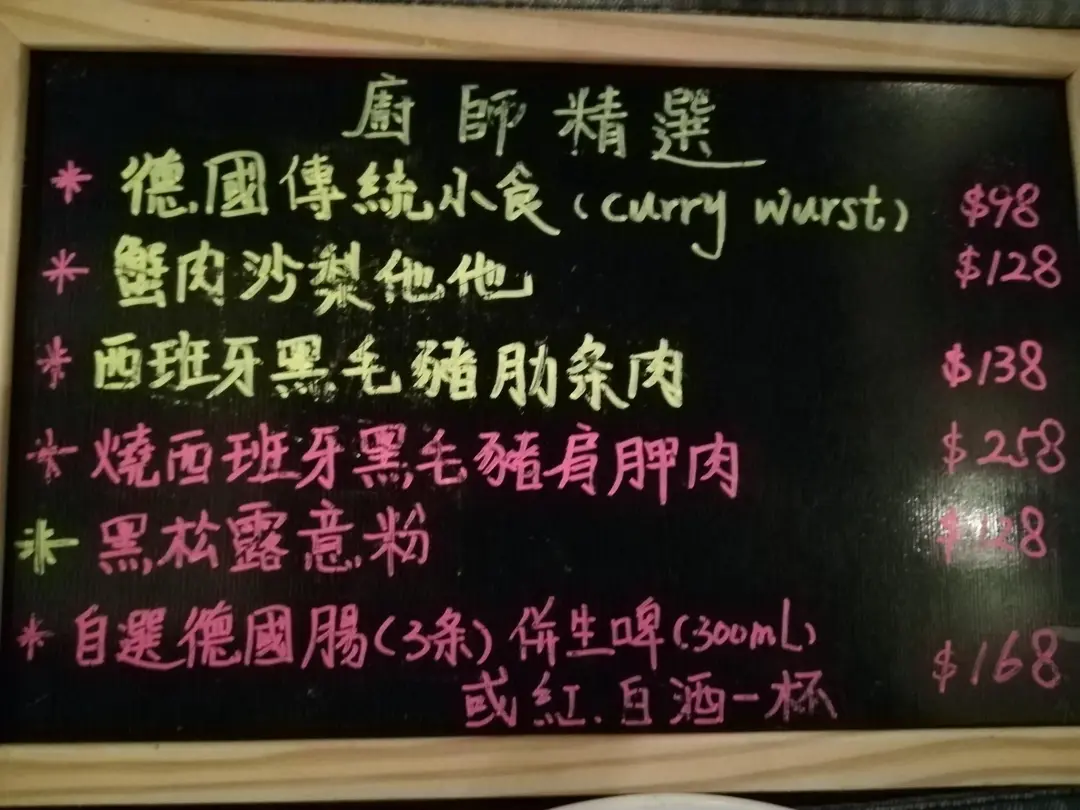 廚師精選
* 德國傳統小食(curry wurst) $98
* 蟹肉沙梨他他 $128
* 西班牙黑毛豬肋条肉 $138
* 燒西班牙黑毛豬肩胛肉 $258
* 黑松露意粉 $128
* 自選德國腸(3条)併生啤(300mL) $168
或紅.白酒一杯